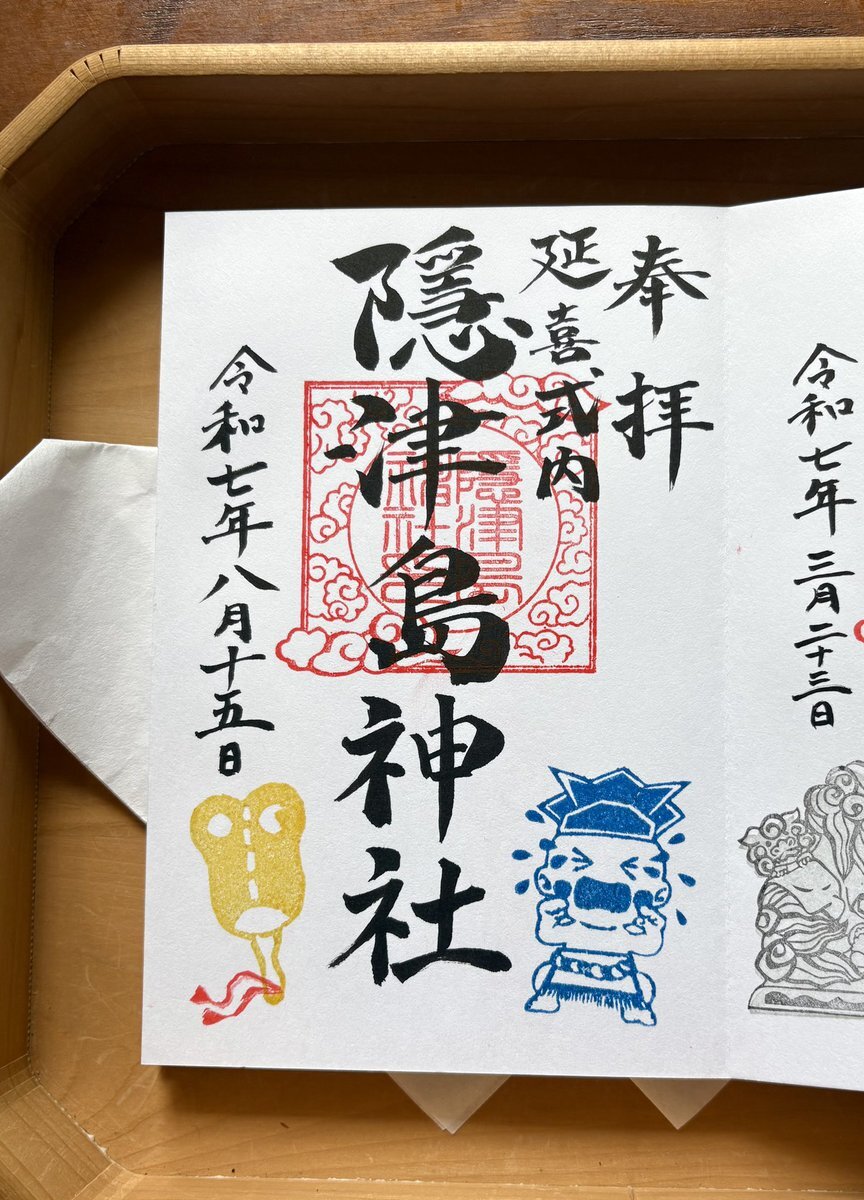 令和七年三月二十三日
奉拝
延喜式内
隱津島神社
令和七年八月十五日